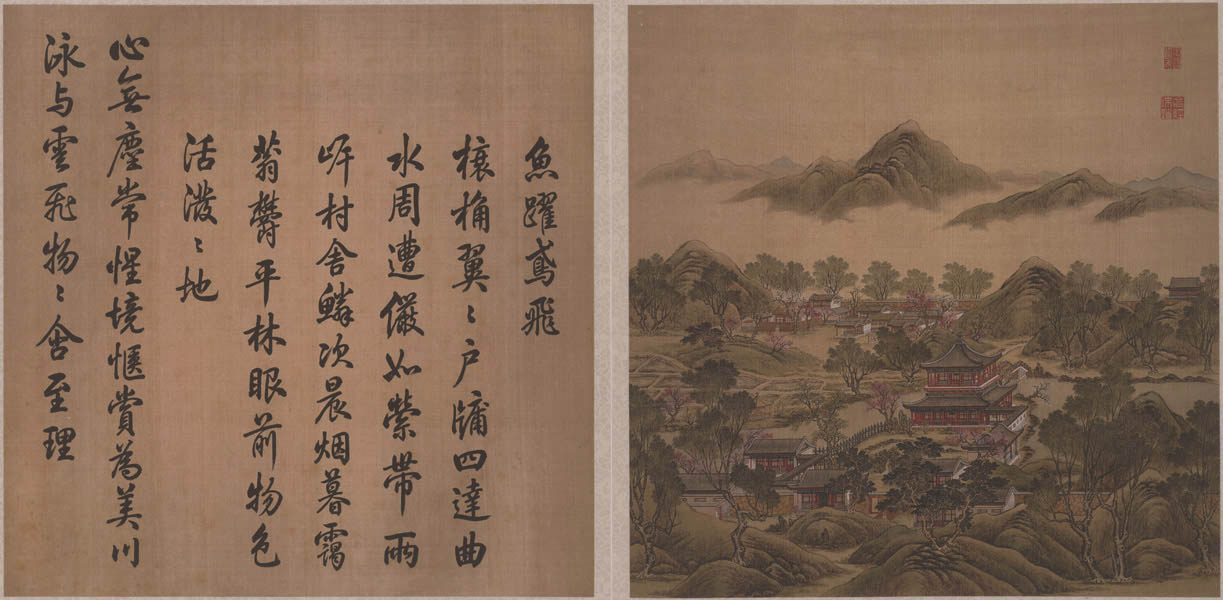 魚躍鳶飛
榱桷翼〻户牖四達曲
水周遭儼如縈帶兩
岸村舍鱗次晨烟暮靄
蓊鬱平林眼前物色
活潑〻地
心無塵常惺境愜賞為美川
泳与雲飛物〻含至理